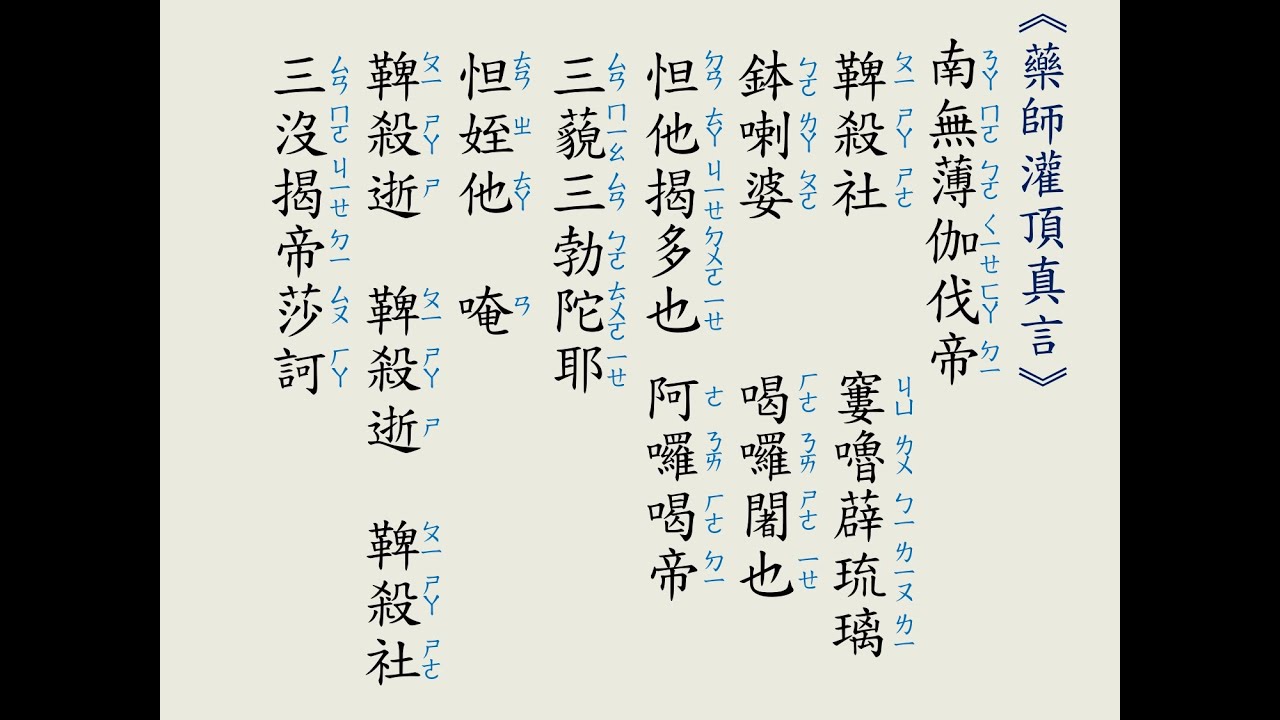 《藥師灌頂真言》
南無薄伽伐帝
ㄋㄚ ㄇㄛ ㄅㄛ ㄑㄧㄝ ㄈㄚ ㄉㄧ
鞞殺社 窶嚕薜琉璃
ㄆㄧ ㄕㄚ ㄕㄜ ㄐㄩ ㄌㄨ ㄅㄧ ㄌㄧㄡ ㄌㄧ
鉢喇婆 喝囉闍也
ㄅㄛ ㄌㄚ ㄆㄛ ㄏㄜ ㄋㄞ ㄕㄜ ㄧㄝ
怛他揭多也 阿囉喝帝
ㄉㄢ ㄊㄚ ㄐㄧㄝ ㄉㄨㄛ ㄧㄝ ㄜ ㄋㄞ ㄏㄜ ㄉㄧ
三藐三勃陀耶
ㄙㄢ ㄇㄧㄠ ㄙㄢ ㄅㄛ ㄊㄨㄛ ㄧㄝ
怛姪他 唵
ㄊㄢ ㄓ ㄊㄚ ㄢ
鞞殺逝 鞞殺逝 鞞殺社
ㄆㄧ ㄕㄚ ㄕ ㄆㄧ ㄕㄚ ㄕ ㄆㄧ ㄕㄚ ㄕㄜ
三沒揭帝莎訶
ㄙㄢ ㄇㄛ ㄐㄧㄝ ㄉㄧ ㄙㄡ ㄏㄚ